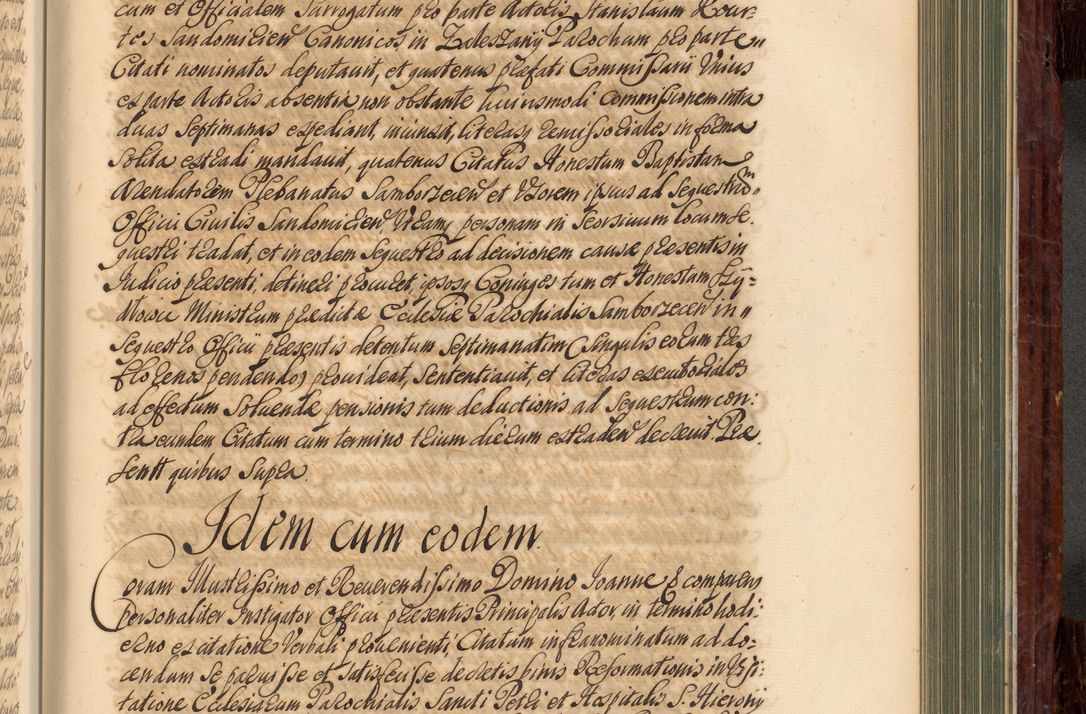 cum et Officialem Surrogatum pro parte Actoris Stanislaum
tos Sandomirien Canonicos in Zaleszany Parochum pro parte
Citati nominatos deputavit, et quatenus præfati Commissarii Unius
ex parte Actoris absentia non obstante huiusmodi Commissionem intra
duas Septimanas expediant, iniunxit, literasq remissoriales in forma
Solita extradi mandavit, quatenus Citatus Honestum Baptistam
Arendatorem Plebanatus Samborzecen et Uxorem ipsius ad Sequestrum
Officii Civilis Sandomirien Utramq personam in Seorsivum locum Se
questri tradat, et in eodem Sequestro ad decisionem causæ præsentis in
Iudicio præsenti, detineri procuret, ipsosq Coniuges tum et Honestam
Ministram prædictæ Ecclesiæ Parochialis Samborzecen in
Sequestro Officii præsentis detentum Septimanatim Singulis eorum tres
florenos pendendo, provideat, Sententiavit, et literas executoriales
ad effectum Solvendæ pensionis tum deductionis ad Sequestrum con:
tra eundem Citatum cum termino trium dierum extraden decrevit Præ
sentt quibus Supra.
Idem cum eodem.
Coram Illustrissimo et Reverendissimo Domino Joanne & comparens
Personaliter Instigator Officii præsentis Principalis Actor, in termino hodi:
erno ex citatione Verbali provenienti, Citatum infranominatum ad do:
cendum Se paruisse et Satisfecisse decretis binis Reformationis in Visi:
tatione Ecclesiarum Parochialis Sancti Petri et Hospitalis S. Hierony